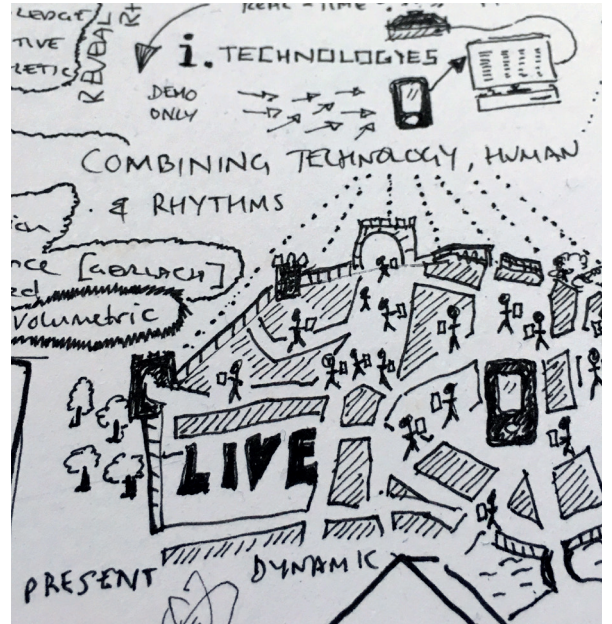 REAL-TIME
LEDGE
TIVE
ETIC
REVEAL
i. TECHNOLOGIES
DEMO
ONLY
COMBINING TECHNOLOGY, HUMAN
& RHYTHMS
ce [GERLACH]
ed
Volumetric
LIVE
PRESENT
DYNAMIC